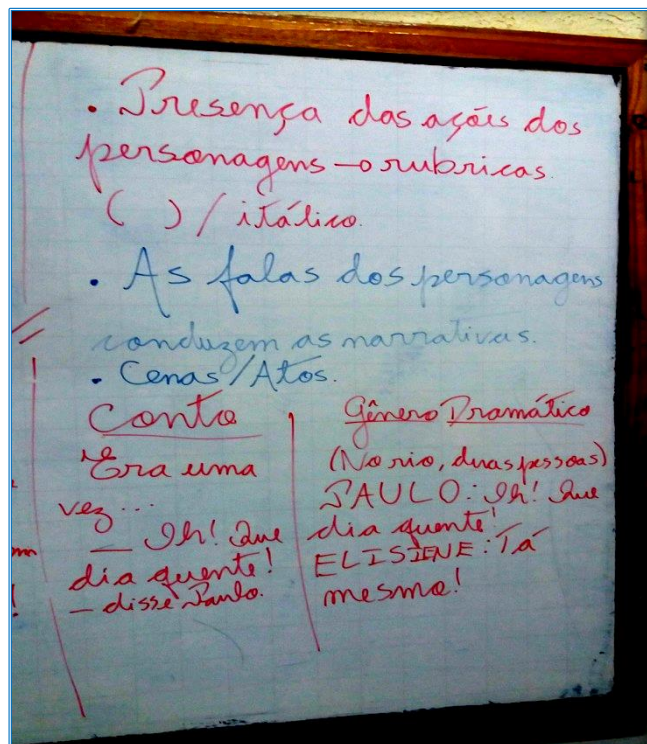 . Presença das ações dos
personagens → rubricas.
( ) / itálico.
. As falas dos personagens
conduzem as narrativas.
. Cenas/Atos.
Conto
Era uma
vez...
— Ih! Que
dia quente!
— disse Paulo.
Gênero Dramático
(No rio, duas pessoas)
PAULO: Ih! Que
dia quente!
ELISIENE: Tá
mesmo!